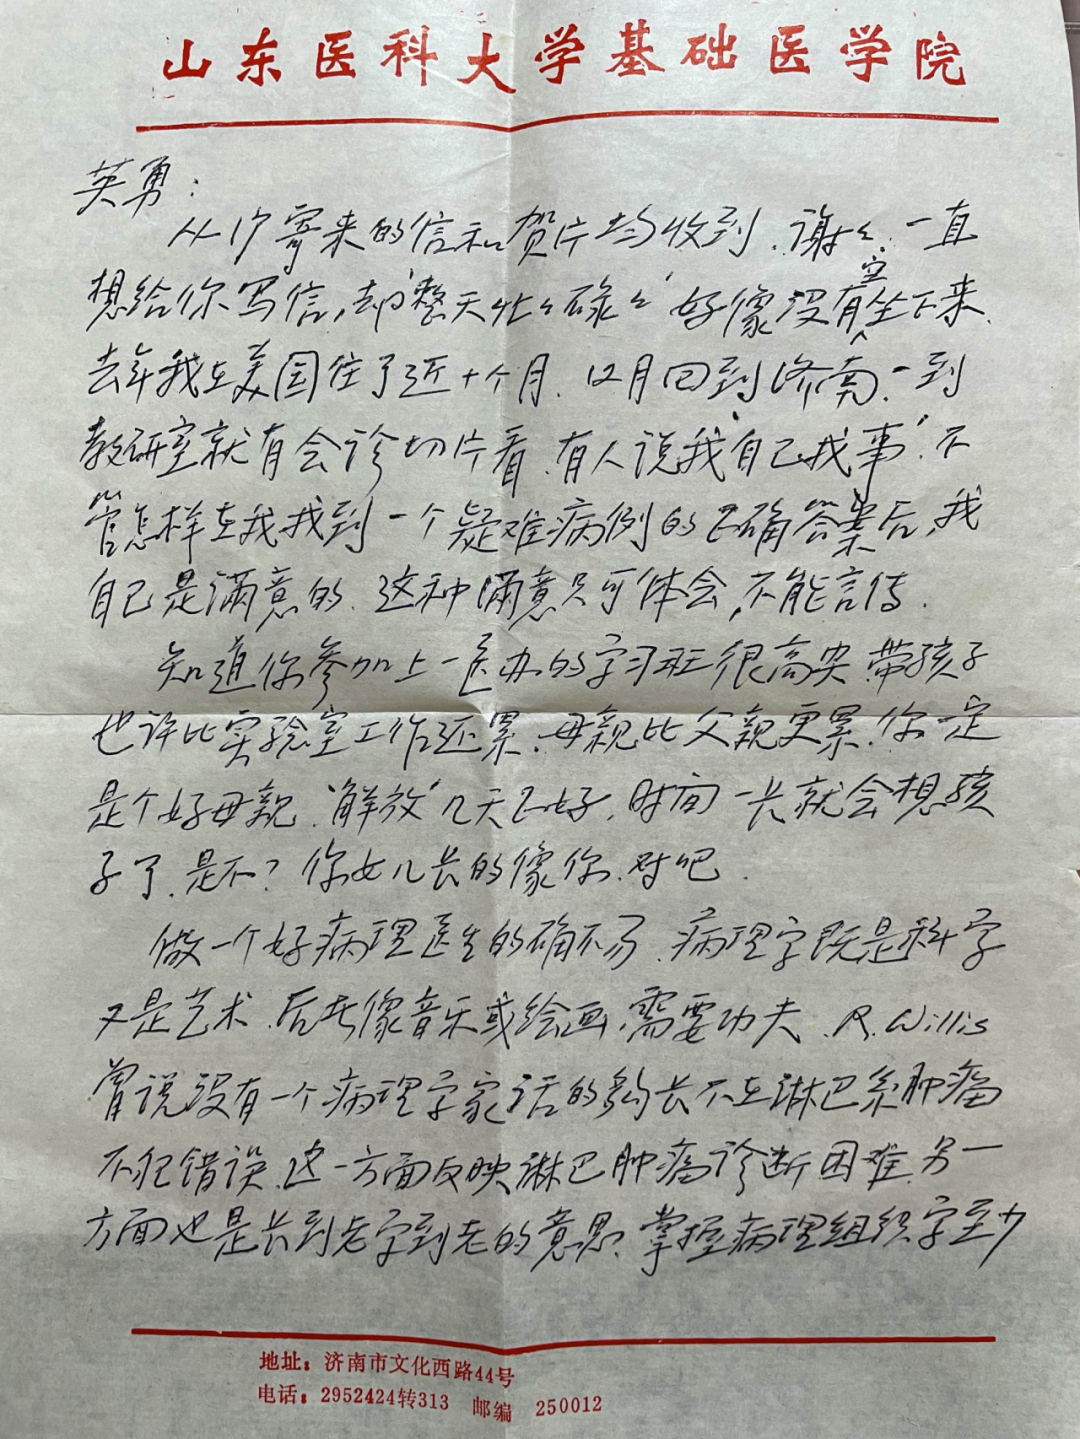 山东医科大学基础医学院
英勇：
从沪寄来的信和贺片均收到．谢々．一直
想给你写信，却“整天忙々碌々”好像没有空坐下来．
去年我在美国住了近十个月．12月回到济南．一到
教研室就有会诊切片看．有人说我“自己找事”．不
管怎样在我找到一个疑难病例的正确答案后，我
自己是满意的．这种满意只可体会，不能言传．
知道你参加上一医办的学习班很高兴．带孩子
也许比实验室工作还累．母亲比父亲更累．你一定
是个好母亲．“解放”几天正好．时间一长就会想孩
子了．是不？你女儿长的像你．对吧．
做一个好病理医生的确不易．病理学既是科学
又是艺术．后者像音乐或绘画．需要功夫．R. Willis
曾说没有一个病理学家活的够长不在淋巴系肿瘤
不犯错误．这一方面反映淋巴肿瘤诊断困难．另一
方面也是长到老学到老的意思．掌握病理组织学至少
地址：济南市文化西路44号
电话：2952424转313 邮编 250012